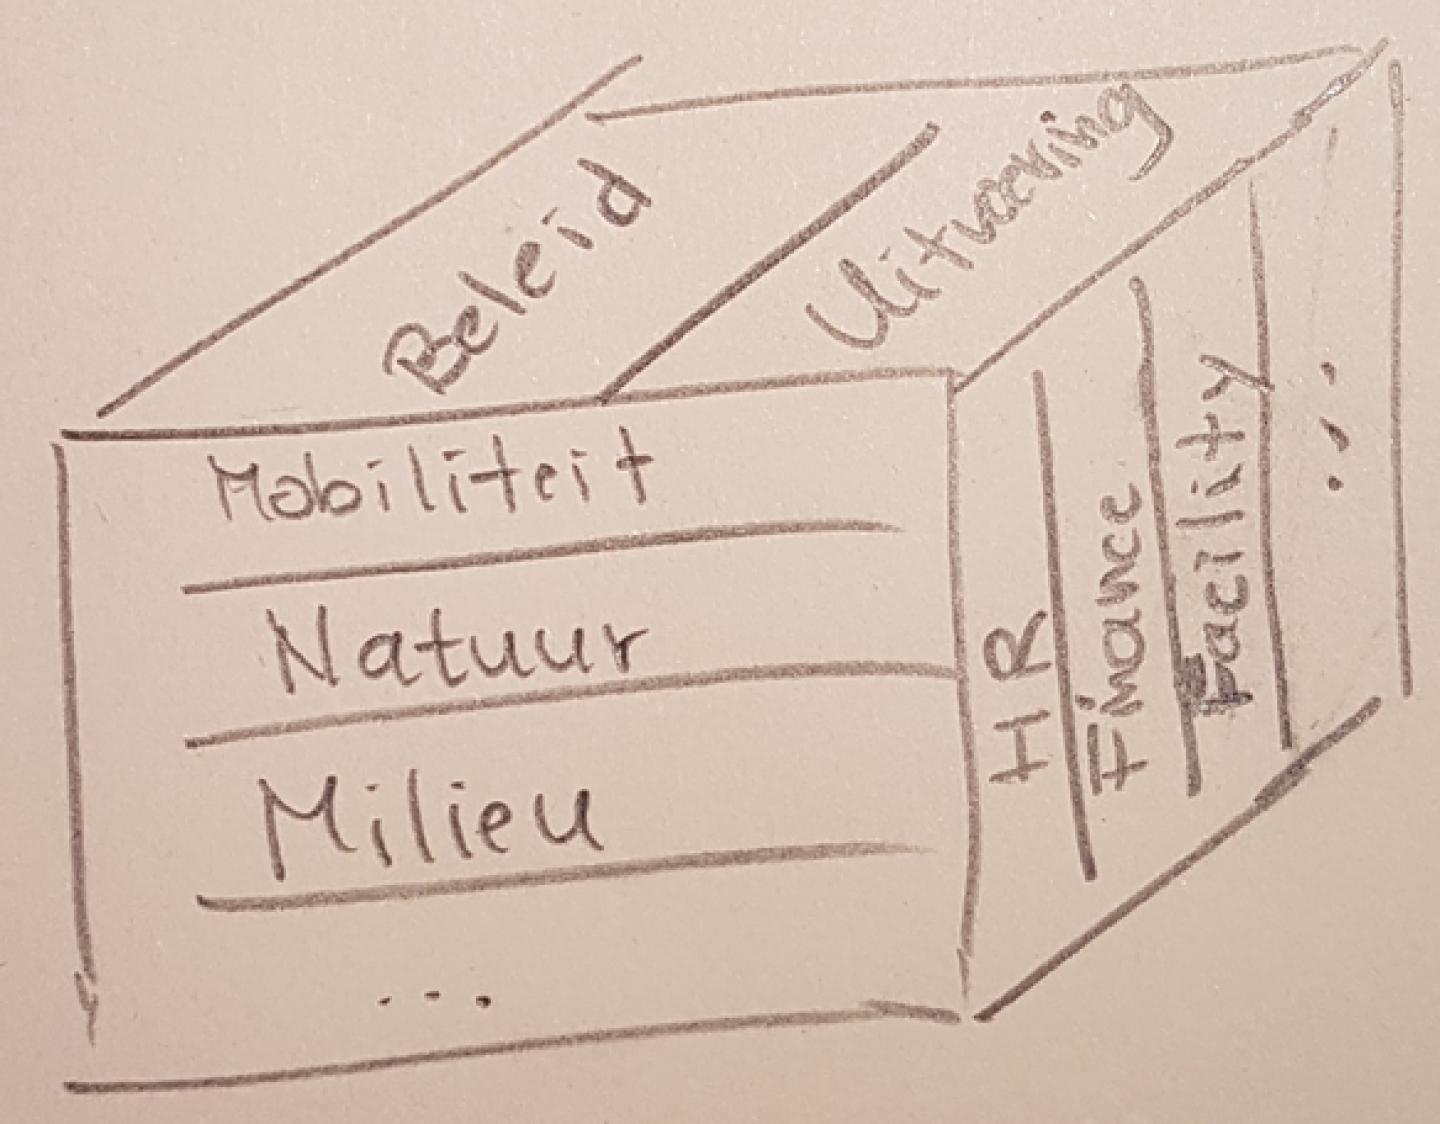 Beleid
Uitvoering
Mobiliteit
Natuur
Milieu
...
HR
Finance
Facility
...